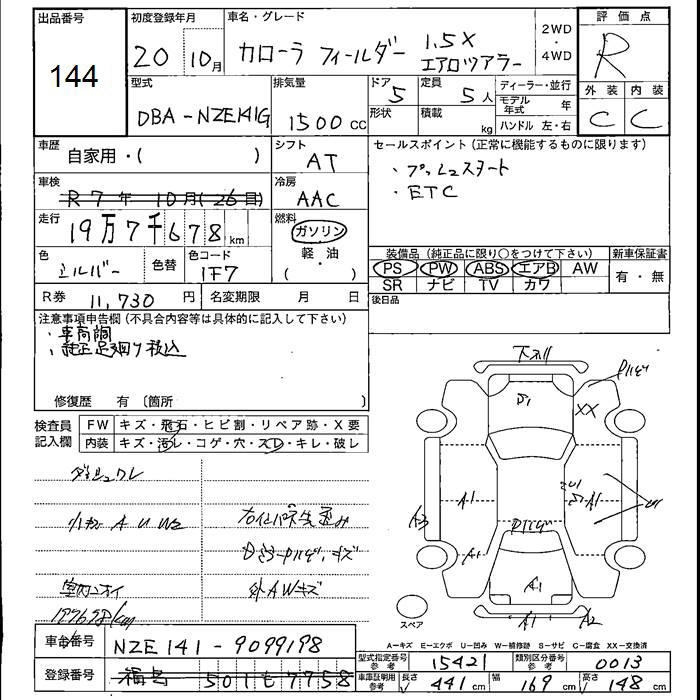 出品番号 初度登録年月 車名・グレード 評価点
144
20 10月 カローラ フィールダー 1.5X エアロツアラー 2WD・4WD R
型式 排気量 ドア 定員 ディーラー・並行 外装 内装
DBA-NZE141G 1500cc 5 5人 モデル年式 年 C C
形状 積載 kg ハンドル 左・右
車歴 シフト セールスポイント(正常に機能するものに限ります)
自家用・( ) AT ・プッシュスタート
車検 冷房 ・ETC
R7年 10月(26日) AAC
走行 燃料
19万7千678km ガソリン
軽・油
( )
装備品(純正品に限り○をつけて下さい) 新車保証書
色 色替 色コード PS PW ABS エアB AW 有・無
シルバー 1F7 SR ナビ TV カワ
R券 11,730円 名変期限 月 日 後日品
注意事項申告欄(不具合内容等は具体的に記入して下さい)
・車高調
・純正足廻り積込
修復歴 有〔箇所 〕
検査員記入欄 FW キズ・飛石・ヒビ割・リペア跡・X要
内装 キズ・汚レ・コゲ・穴・スレ・キレ・破レ
ダッシュワレ
小キズ A U W2
室内ニオイ
197678km
外AWキズ
XX
A1
A1
A1
A1
A3
A1
A2
スペア
A-キズ E-エクボ U-凹み W-補修跡 S-サビ C-腐食 XX-交換済
車台番号 NZE141-9099198
登録番号 501 7758
型式指定番号参考 15421 類別区分番号参考 0013
車庫証明用参考 長さ 441cm 幅 169cm 高さ 148cm